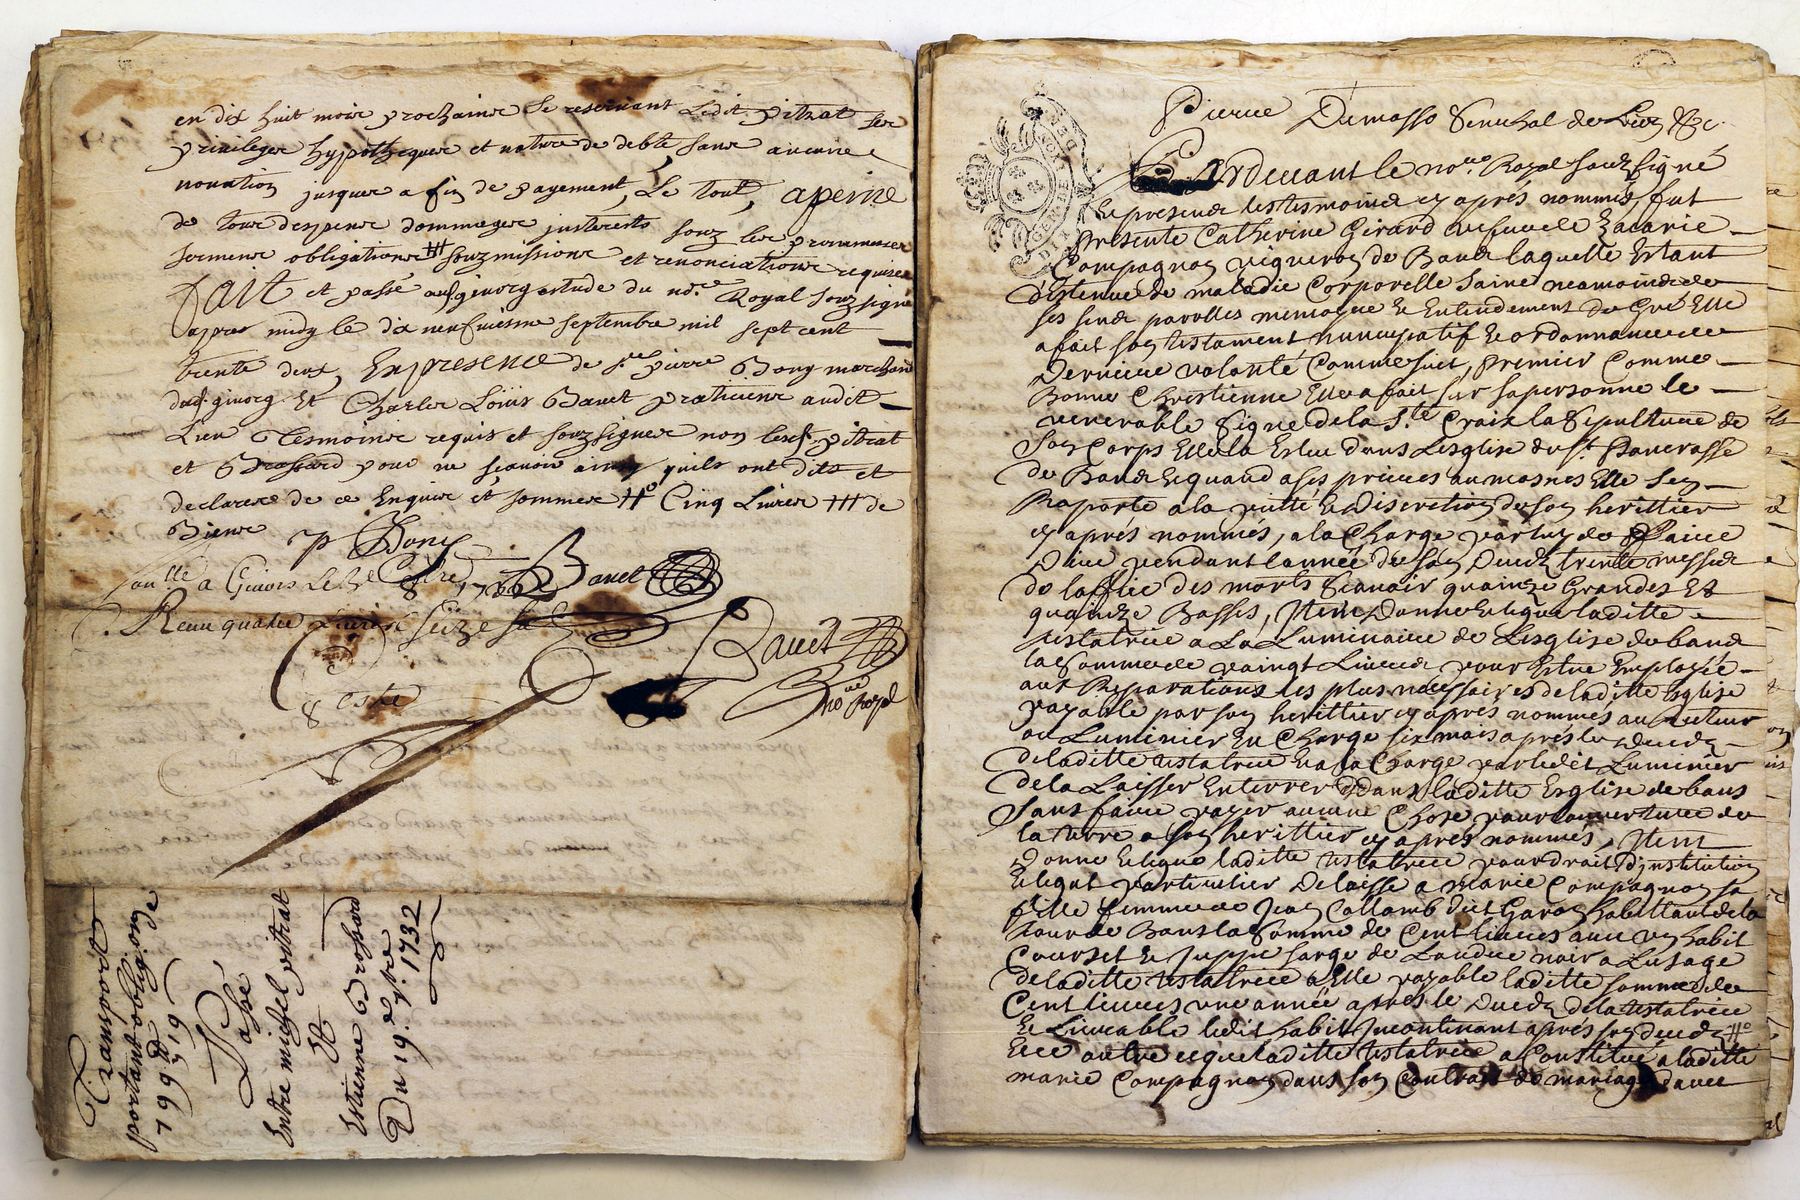 en dix huit mois prochains se reservant Ledit pitrat ses
privileges hypotheques et nature de debte sans aucune
novation jusques a fin de payement, Le tout, a peine
de tous despens dommages interests souz les promesses
serments obligations ## souzmissions et renonciations requises
fait et passé aud. givorg estude du no.re Royal souzsigné
apres midy le dix neufviesme septembre mil sept cent
trente deux, En presence de s.r pierre Bony marchand
dud. givorg Et Charles Louis Bavet praticiens audit
Lieu Tesmoins requis et souzsignez non lesd. pitrat
et Brossard pour ne sçavoir ainsy quils ont dits et
declarere de ce Enquis et sommes # Cinq Livres ### de
Biens
P Bony
a Givors Le
Bavet
Receu quatre Livres seize
Bavet
no.re Royal
Transport
portant oblig.on de
799
Passé
Entre michel pitrat
Et
Estienne Brossard
Du 19.e 7.bre 1732
Pierre Damasse Senechal de &c.
DIX DEN
GENER
LYON
Pardevant le no.re Royal souzsigné
Et presents les tesmoins cy aprés nommés, fut
presente Catherine Girard vefve de Zacarie
Compagnon vigneron de Bans laquelle Estant
destenue de maladie Corporelle saine neamoins de
ses sens parolles memoyre Et Entendement de Gré Elle
a fait son testament nuncupatif Et ordonnance de
derniere volonté Comme suit, premier Comme
Bonne Chrestienne Elle a fait sur sa personne le
venerable signe de la S.te Croix la sepulture de
son Corps Elle la Eslue dans Lesglise de s.t Pancrasse
de Bans Et quand a ses prieres aumosnes Elle sen
Raporte a la pitté Et Discretion de son herittier
cy aprés nommés, a la Charge par luy de faire
Dire pendant lannée de son Decedz trente messes
de loffice des morts scavoir quainze Grandes Et
quainze Basses, Item Donne Et legue laditte
testatrice a La Luminaire de Lesglise de bans
la somme de vaingt Livres pour Estre Employée
aux Reparations les plus necessaires de laditte Esglise
payable par son herittier cy aprés nommés au
ou Luminier En Charge six mois aprés le Decedz
de laditte testatrice Et a la Charge par ledit Luminier
de la Laisser Enterrer dans laditte Esglise de bans
sans faire payer aucune Chose pour ouverture de
la terre a son herittier cy aprés nommés, Item
donne Et legue laditte testatrice pour droit dinstitution
Et legat particulier Delaisse a marie Compagnon sa
fille femme de Jean Collomb dit Garon habittant de la
tour de Bans la somme de Cent livres avec un habit
Courset Et Juppe sarge de Londre noir a Lusage
de laditte testatrice a Elle payable laditte somme de
Cent livres une année aprés le Decedz de la testatrice
Et Livrable ledit habit Incontinant aprés son decedz #
Et ce outre ce que laditte testatrice a Constitué a laditte
marie Compagnon dans son Contrat de mariage avec